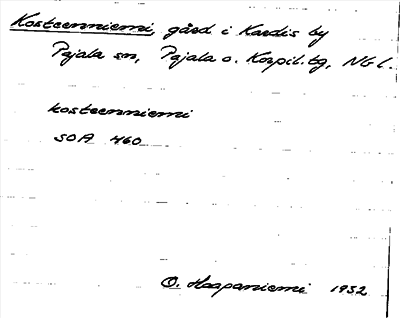 Kosteenniemi, gård i Kardis by
Pajala sn, Pajala o. Korpil. tg, NG l.
kosteenniemi
SOA 460
O. Haapaniemi 1932